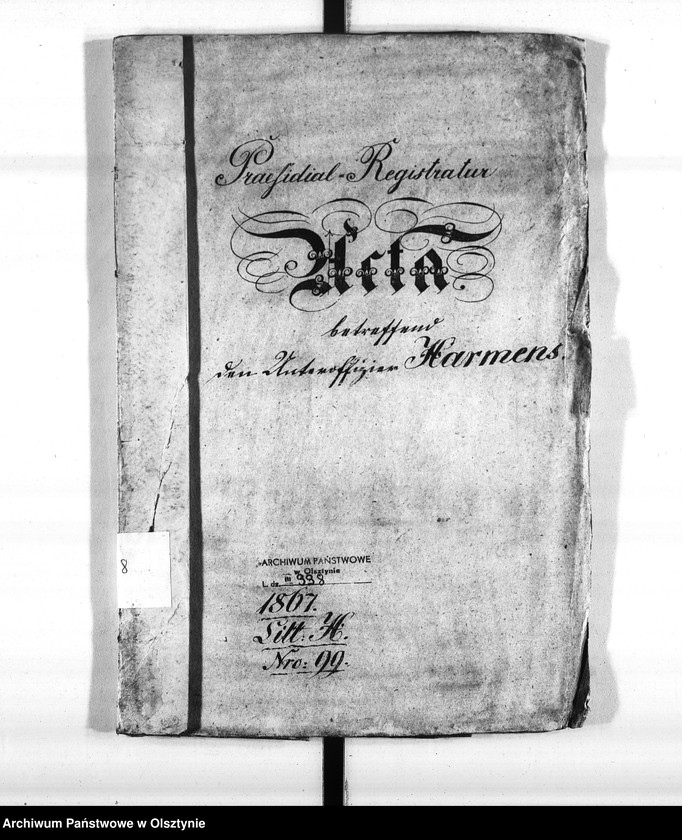 Praesidial-Registratur
Acta.
betreffend
den Unteroffizier Harmens.
8
ARCHIWUM PAŃSTWOWE
w Olsztynie
L. dz. III 998
1867.
Litt: H.
Nro: 99.
Archiwum Państwowe w Olsztynie